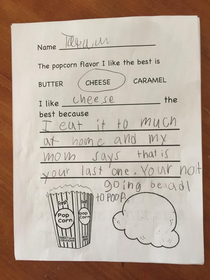 Name
The popcorn flavor I like the best is
BUTTER CHEESE CARAMEL
I like cheese the
best because
I eat it to much
at home and my
mom says that is
your last one. Your not
going
to POOP.
Pop
Corn